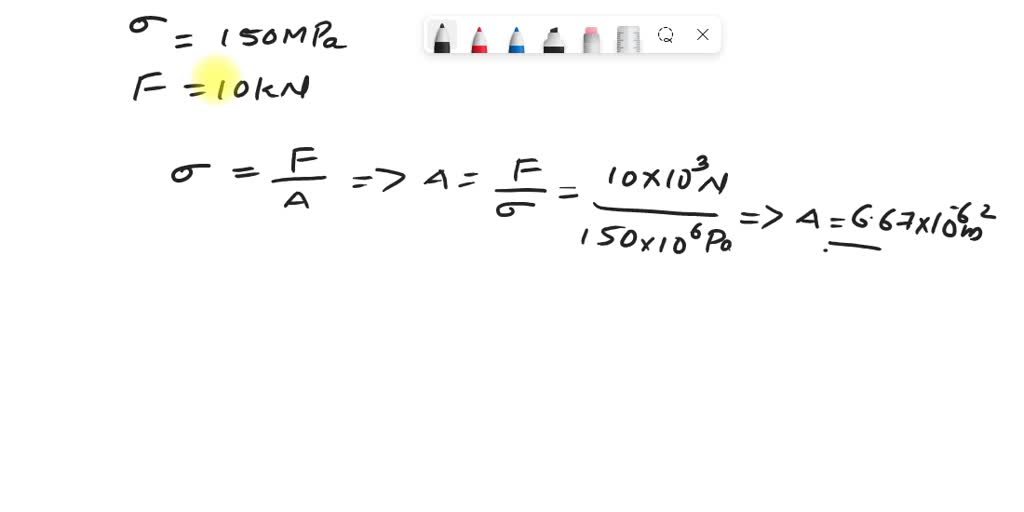 σ = 150MPa
F = 10kN
σ = F/A => A = F/σ = 10×10³N / 150×10⁶Pa => A = 6.67×10⁻⁶m²